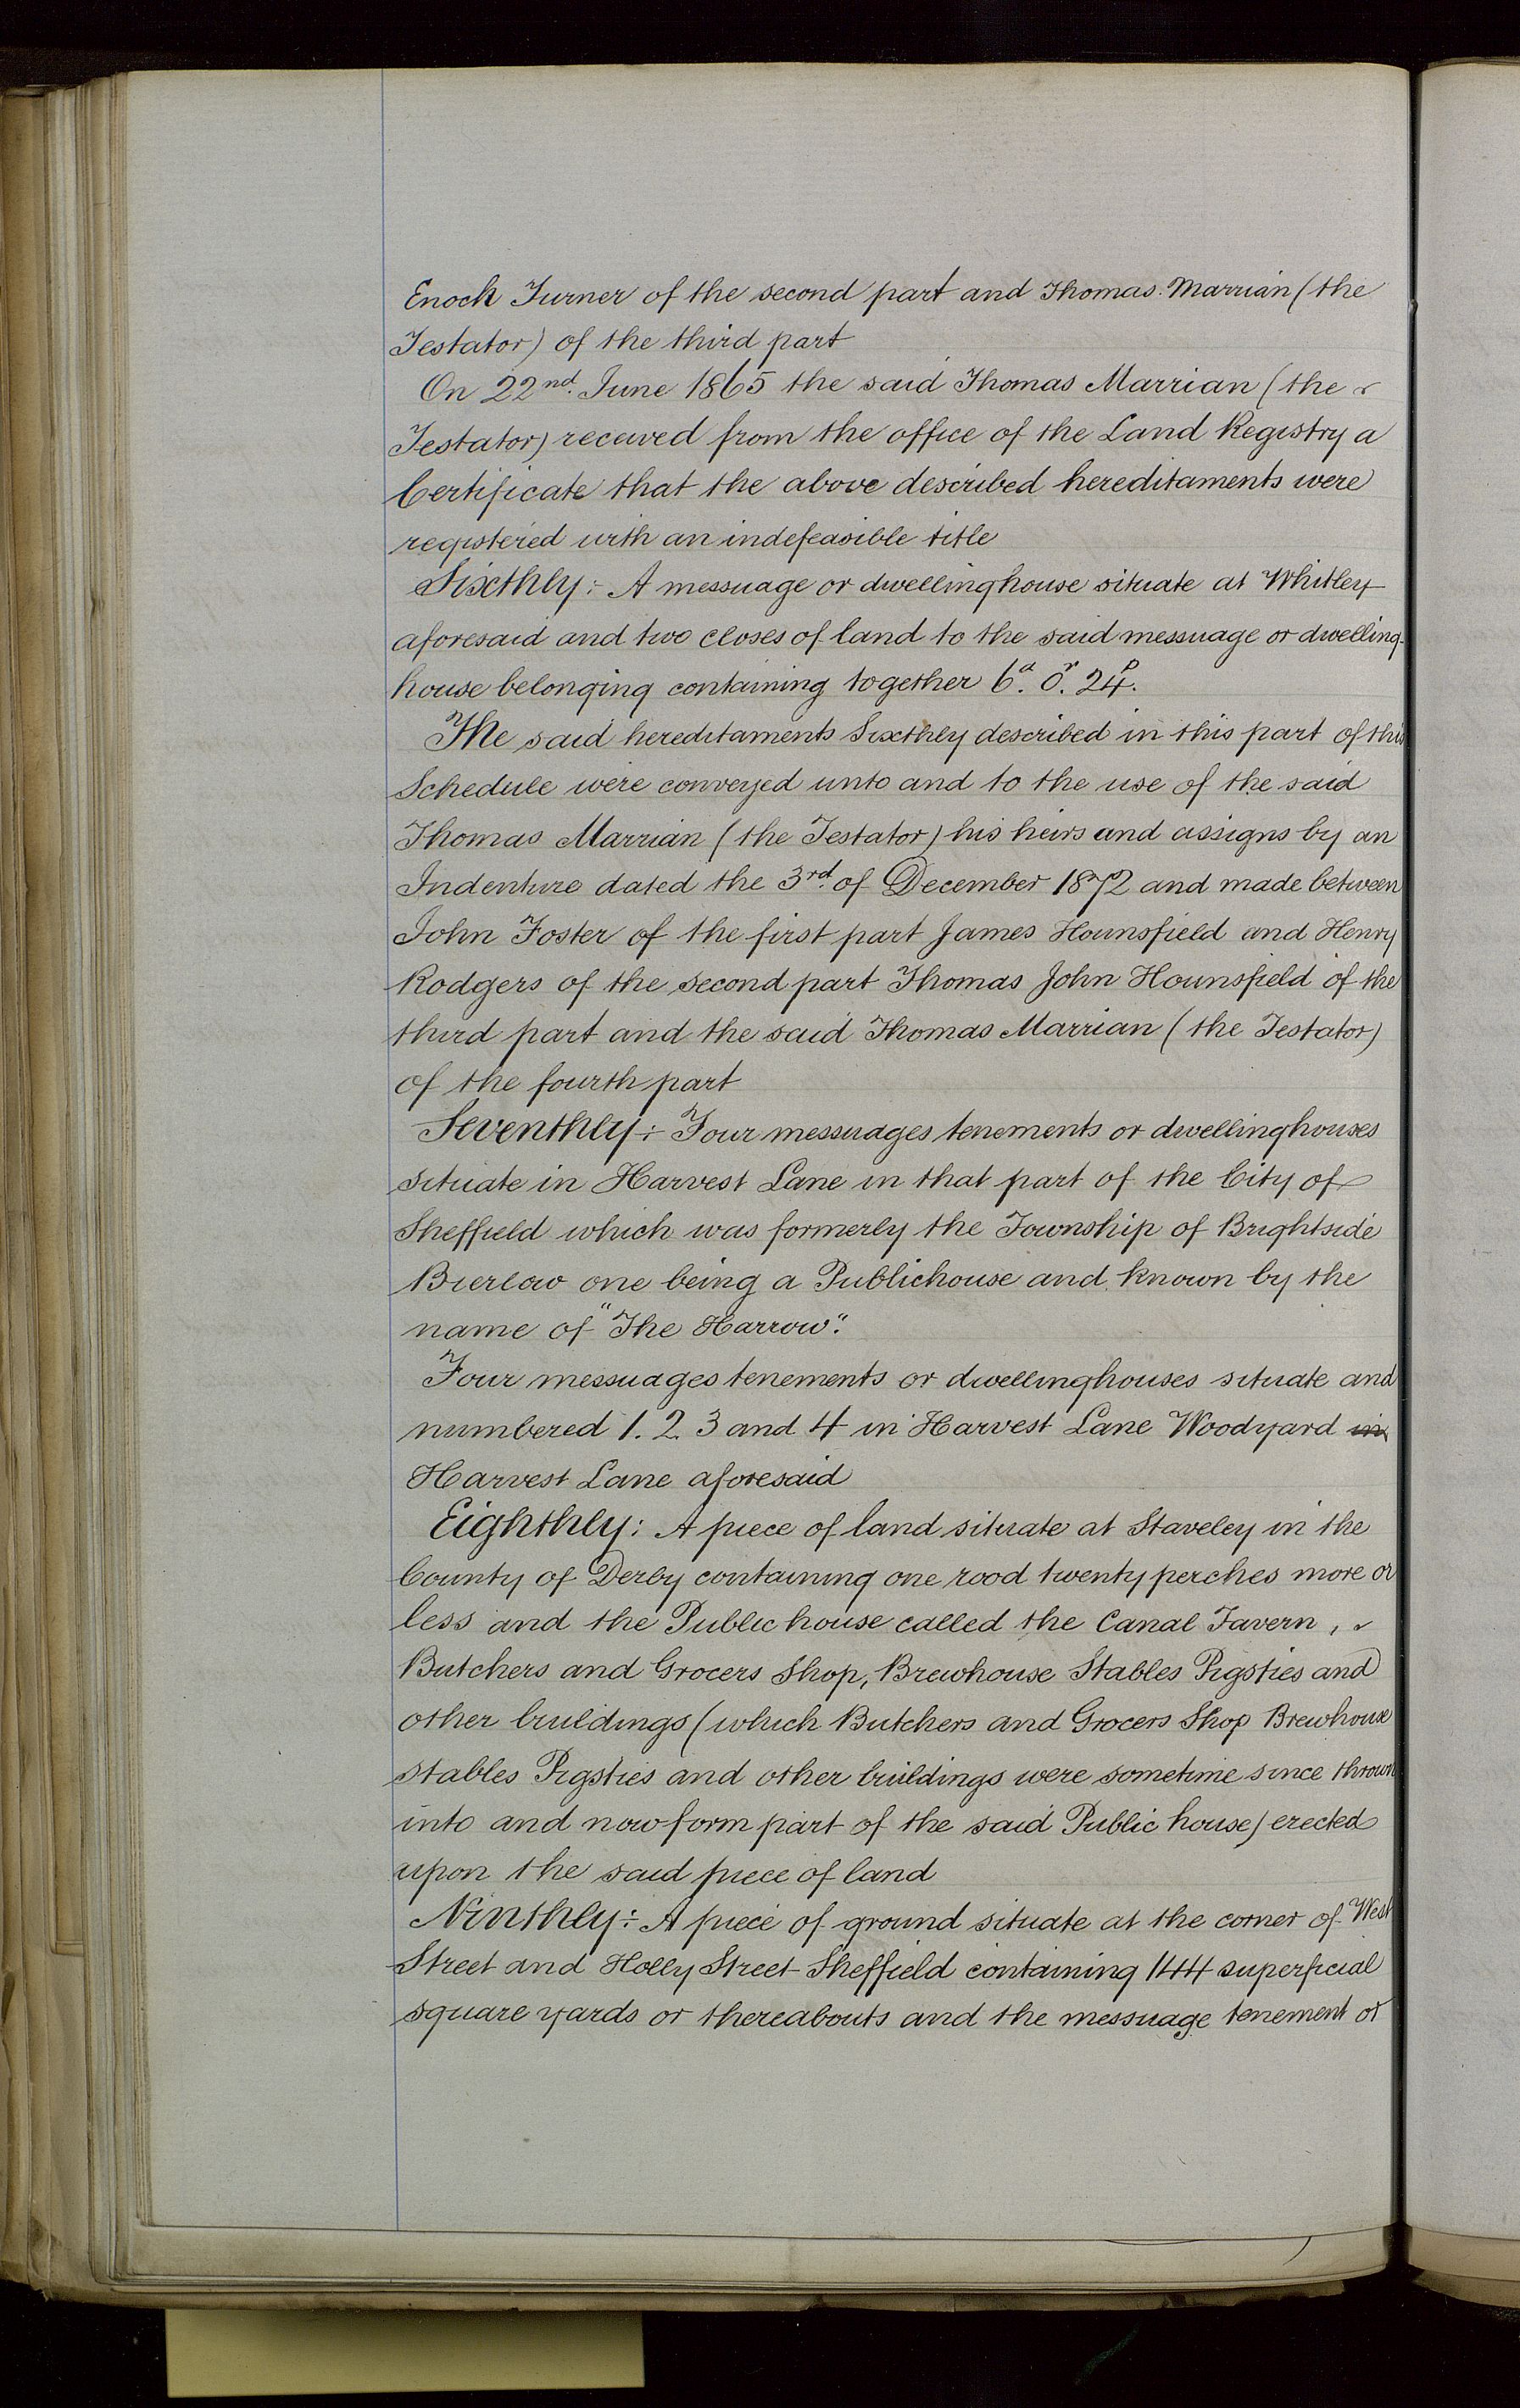 Enoch Turner of the second part and Thomas Marrian (the
Testator) of the third part
On 22nd. June 1865 the said Thomas Marrian (the
Testator) received from the office of the Land Registry a
Certificate that the above described hereditaments were
registered with an indefeasible title
Sixthly:- A messuage or dwellinghouse situate at Whitley
aforesaid and two closes of land to the said messuage or dwelling-
house belonging containing together 6a. 0r. 24p.
The said hereditaments Sixthly described in this part of this
Schedule were conveyed unto and to the use of the said
Thomas Marrian (the Testator) his heirs and assigns by an
Indenture dated the 3rd. of December 1872 and made between
John Foster of the first part James Hounsfield and Henry
Rodgers of the second part Thomas John Hounsfield of the
third part and the said Thomas Marrian (the Testator)
of the fourth part
Seventhly:- Four messuages tenements or dwellinghouses
situate in Harvest Lane in that part of the City of
Sheffield which was formerly the Township of Brightside
Bierlow one being a Publichouse and known by the
name of "The Harrow".
Four messuages tenements or dwellinghouses situate and
numbered 1. 2. 3 and 4 in Harvest Lane Woodyard in
Harvest Lane aforesaid
Eighthly: A piece of land situate at Staveley in the
County of Derby containing one rood twenty perches more or
less and the Public house called the Canal Tavern,
Butchers and Grocers Shop, Brewhouse Stables Pigsties and
other buildings (which Butchers and Grocers Shop Brewhouse
Stables Pigsties and other buildings were sometime since thrown
into and now form part of the said Public house) erected
upon the said piece of land
Ninthly:- A piece of ground situate at the corner of West
Street and Holly Street Sheffield containing 144 superficial
square yards or thereabouts and the messuage tenement or